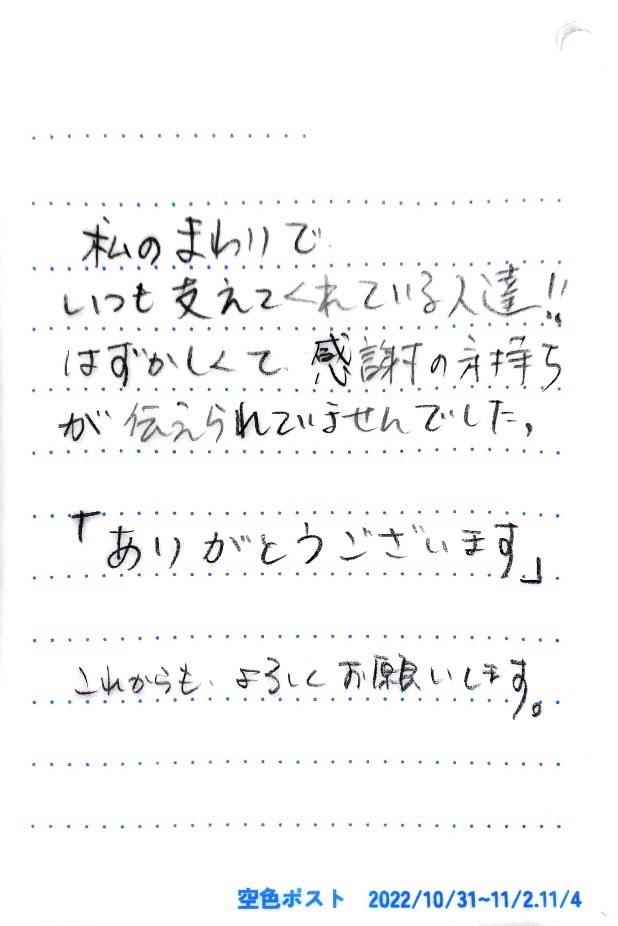 私のまわりで
いつも支えてくれている人達!!
はずかしくて感謝の気持ち
が伝えられていませんでした,
「ありがとうございます」
これからも、よろしくお願いします。
空色ポスト 2022/10/31~11/2.11/4